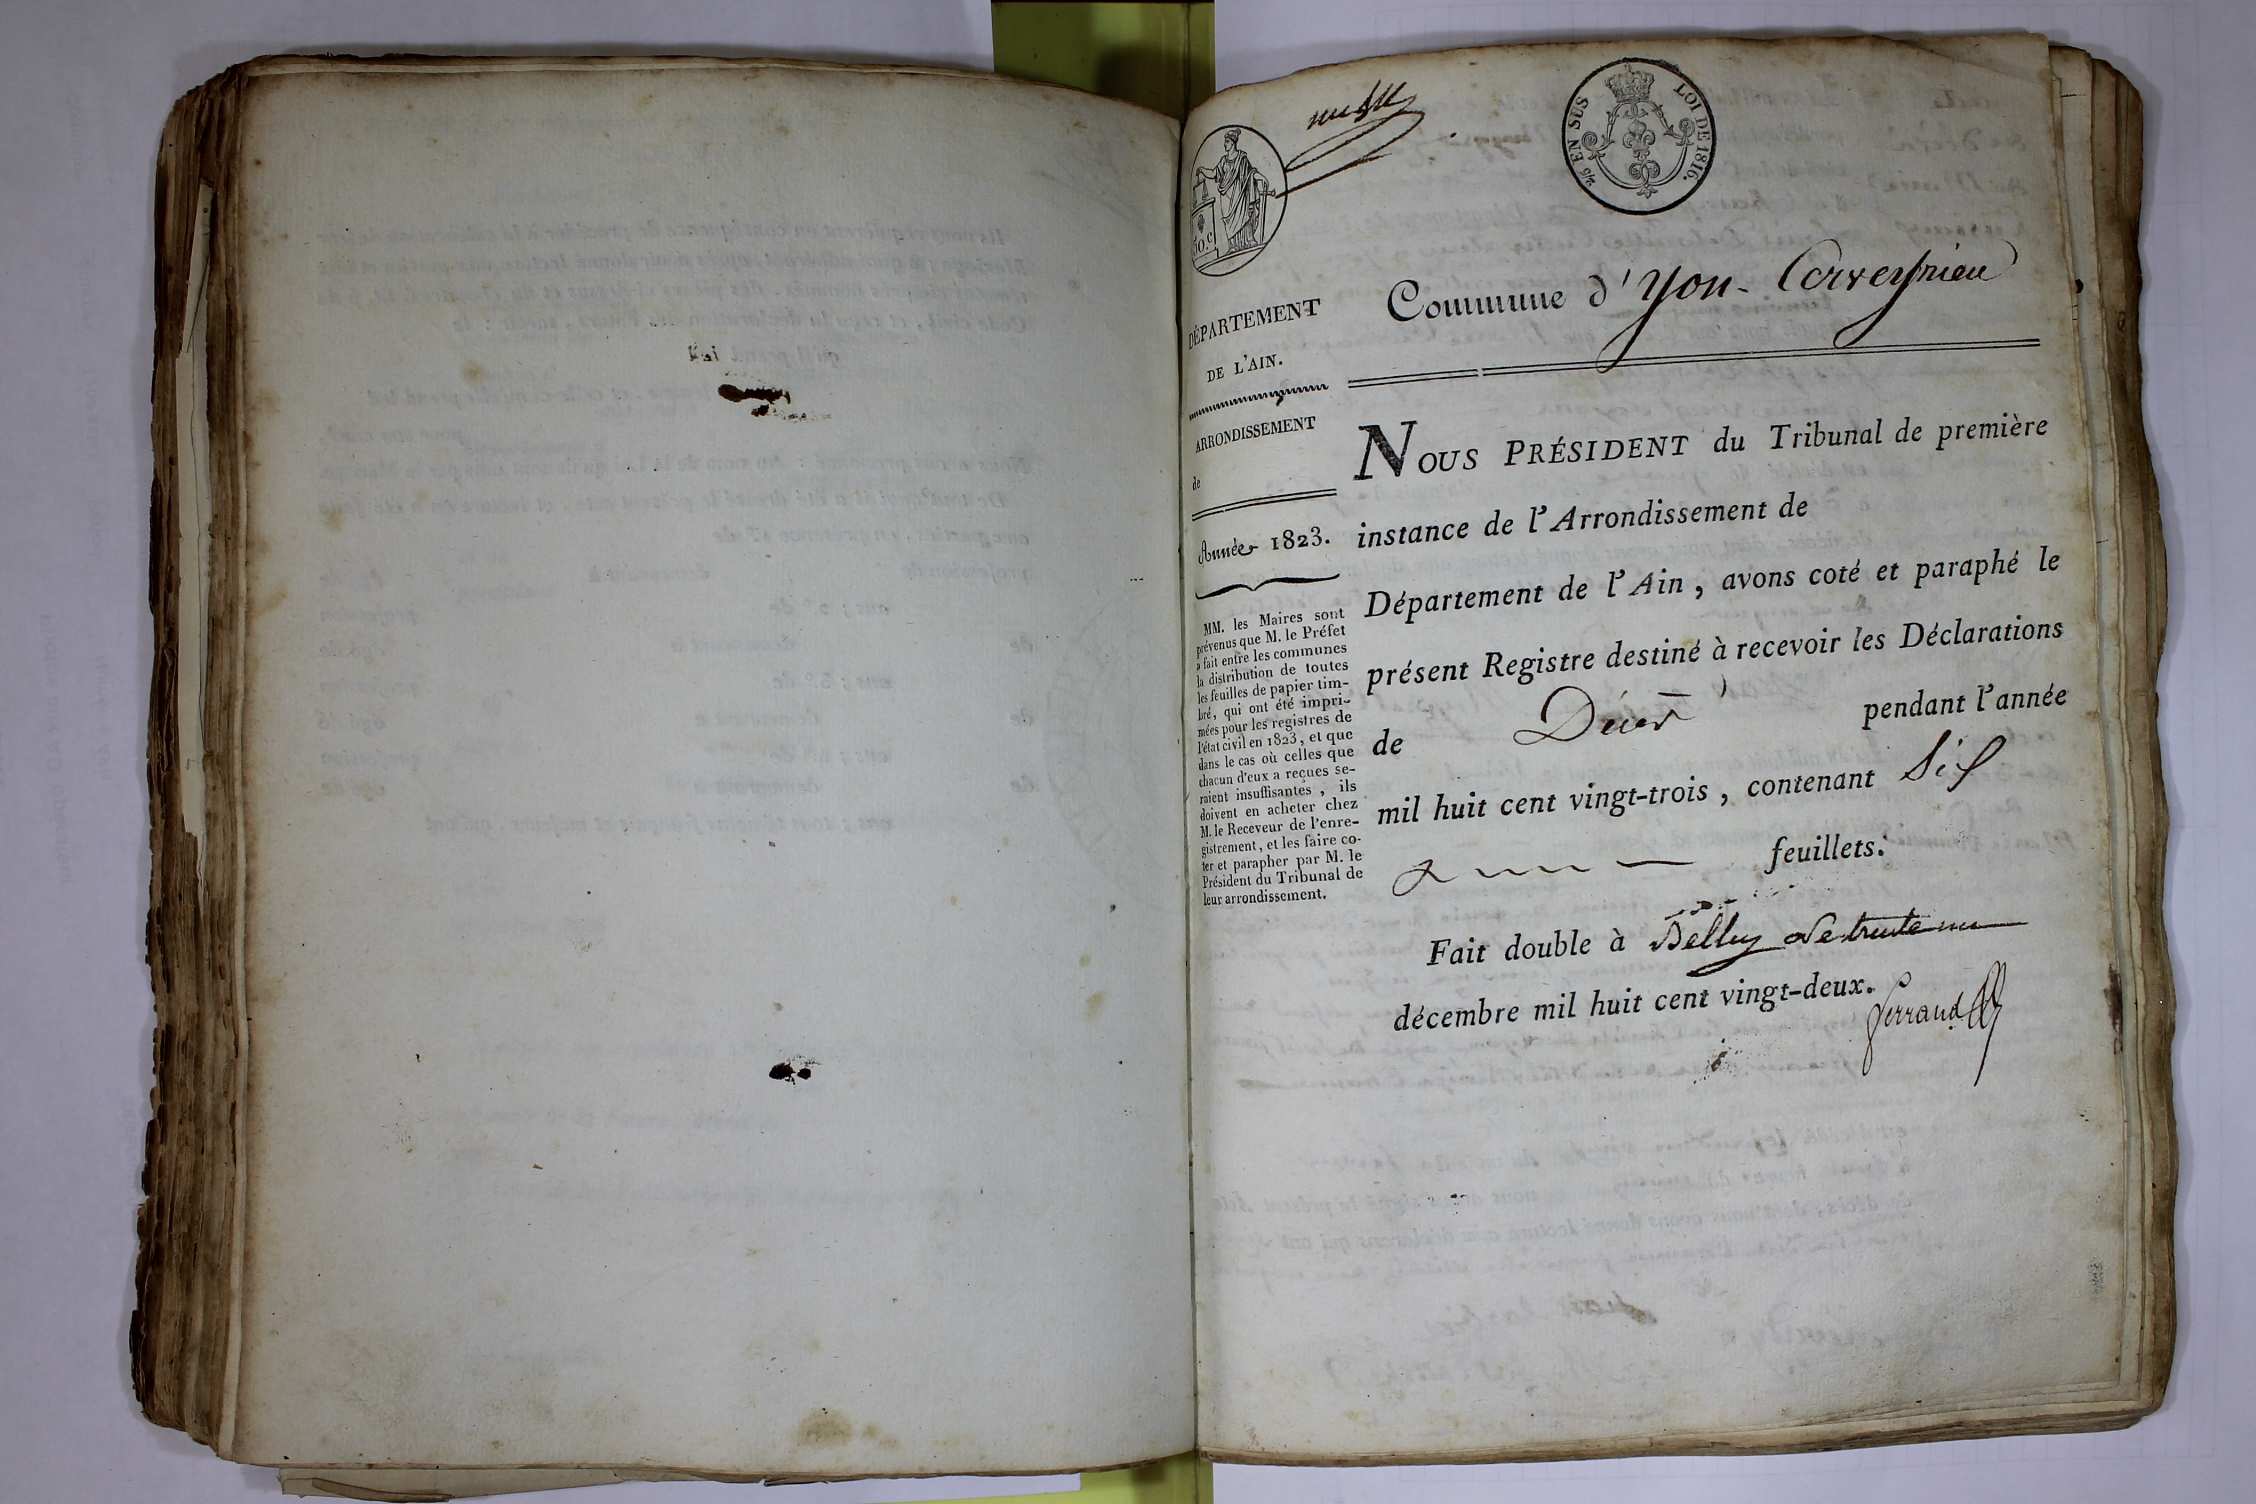 2/5 EN SUS
LOI DE 1816.
50.c
DÉPARTEMENT
DE L'AIN.
ARRONDISSEMENT
de
Année 1823.
MM. les Maires sont
prévenus que M. le Préfet
a fait entre les communes
la distribution de toutes
les feuilles de papier tim-
bré, qui ont été impri-
mées pour les registres de
l'état civil en 1823, et que
dans le cas où celles que
chacun d'eux a reçues se-
raient insuffisantes, ils
doivent en acheter chez
M. le Receveur de l'enre-
gistrement, et les faire co-
ter et parapher par M. le
Président du Tribunal de
leur arrondissement.
Commune d'Yon-Cerveyrieu
NOUS PRÉSIDENT du Tribunal de première
instance de l'Arrondissement de
Département de l'Ain, avons coté et paraphé le
présent Registre destiné à recevoir les Déclarations
de Décès pendant l'année
mil huit cent vingt-trois, contenant Six
feuillets.
Fait double à Belley le trente un
décembre mil huit cent vingt-deux.
Ferrand